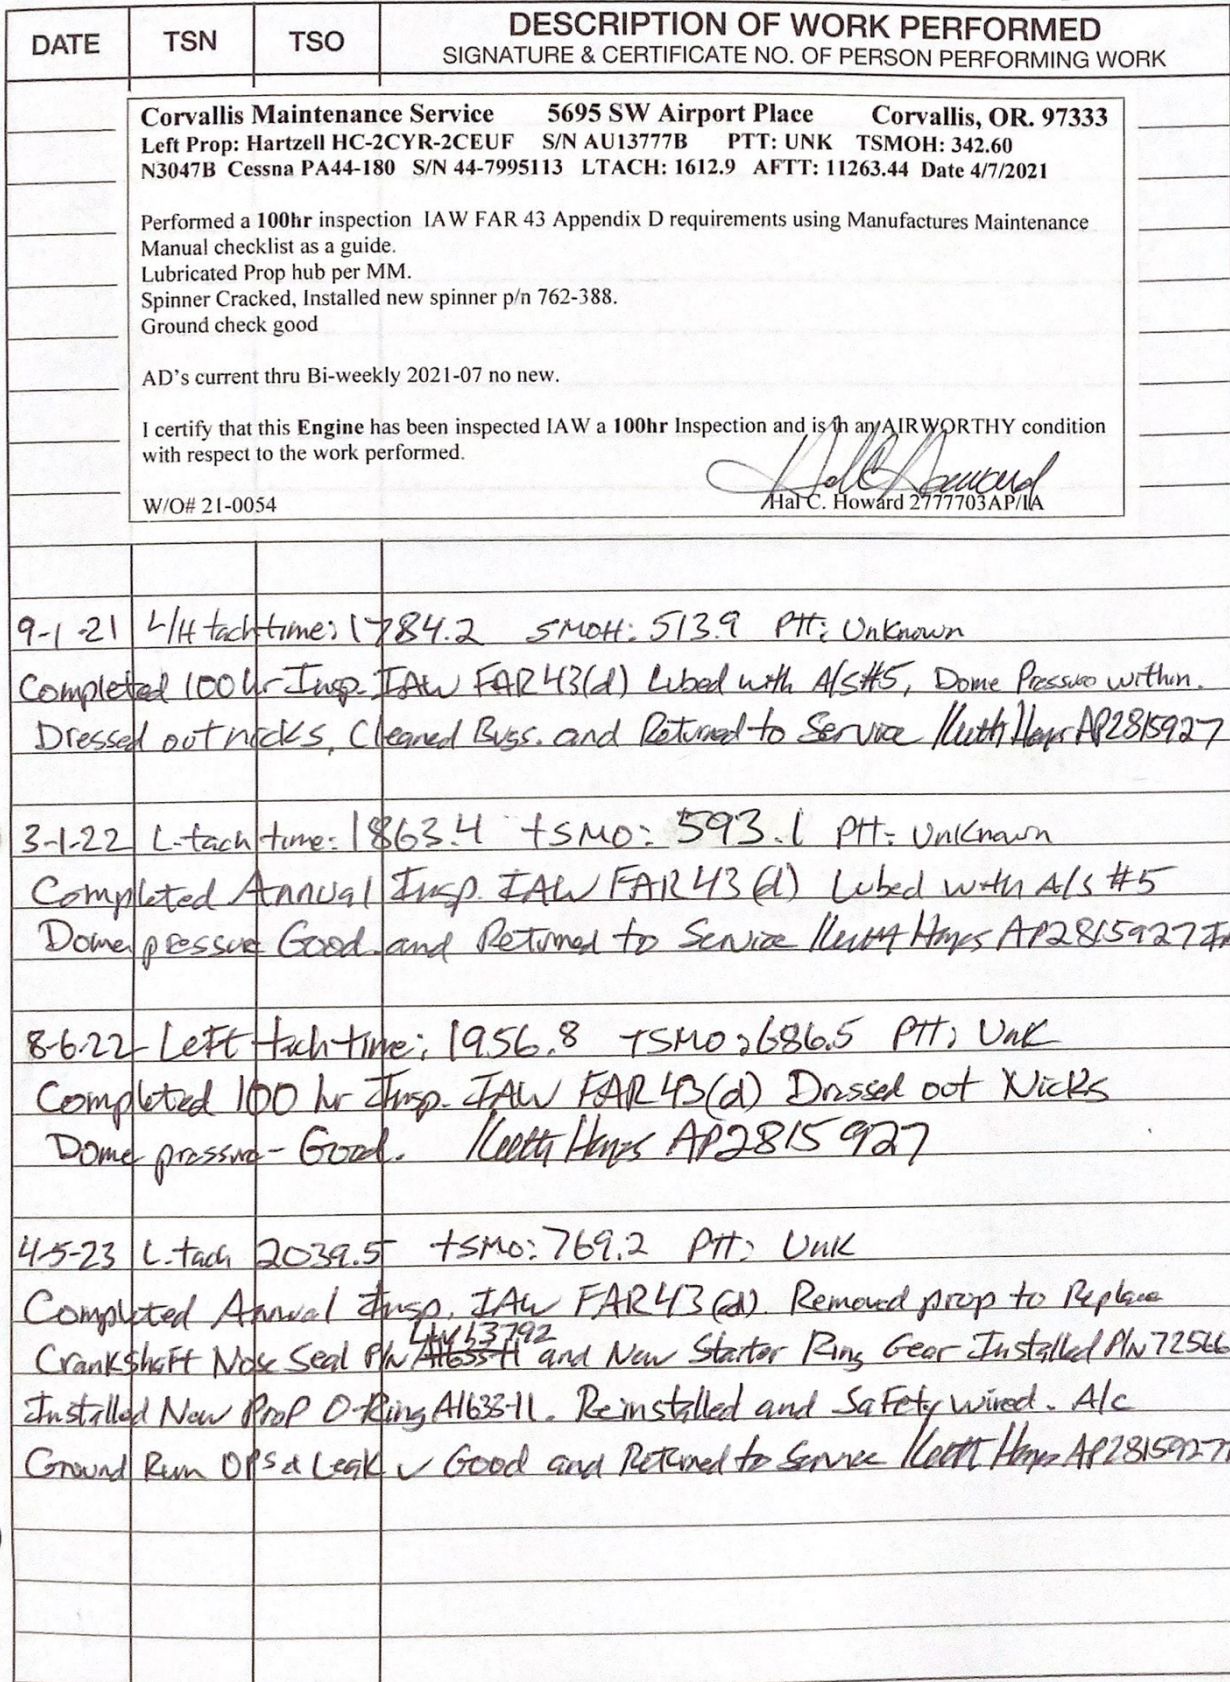 DATE TSN TSO DESCRIPTION OF WORK PERFORMED
SIGNATURE & CERTIFICATE NO. OF PERSON PERFORMING WORK
Corvallis Maintenance Service 5695 SW Airport Place Corvallis, OR. 97333
Left Prop: Hartzell HC-2CYR-2CEUF S/N AU13777B PTT: UNK TSMOH: 342.60
N3047B Cessna PA44-180 S/N 44-7995113 LTACH: 1612.9 AFTT: 11263.44 Date 4/7/2021
Performed a 100hr inspection IAW FAR 43 Appendix D requirements using Manufactures Maintenance
Manual checklist as a guide.
Lubricated Prop hub per MM.
Spinner Cracked, Installed new spinner p/n 762-388.
Ground check good
AD's current thru Bi-weekly 2021-07 no new.
I certify that this Engine has been inspected IAW a 100hr Inspection and is in an AIRWORTHY condition
with respect to the work performed.
W/O# 21-0054 Hal C. Howard 2777703AP/IA
9-1-21 L/H tach time: 1784.2 SMOH: 513.9 PTT: Unknown
Completed 100 hr Insp. IAW FAR 43(d) Lubed with A/S#5, Dome Pressure within.
Dressed out nicks, Cleaned Bugs. and Returned to Service Keith Hayes AP2815927
3-1-22 L-tach time: 1863.4 TSMO: 593.1 PTT: Unknown
Completed Annual Insp. IAW FAR 43 (d) Lubed with A/S #5
Dome pressure Good. and Returned to Service Keith Hayes AP2815927 IA
8-6-22 Left tach time: 1956.8 TSMO: 686.5 PTT: Unk
Completed 100 hr Insp. IAW FAR 43(d) Dressed out Nicks
Dome pressure - Good. Keith Hayes AP2815927
4-5-23 L-tach 2039.5 TSMO: 769.2 PTT: Unk
Completed Annual Insp. IAW FAR 43 (d). Removed prop to Replace
Crankshaft Nose Seal P/N A1633-11 13792 and New Starter Ring Gear Installed P/N 72566
Installed New Prop O-Ring A1633-11. Reinstalled and Safety wired. A/c
Ground Run OPS & Leak ✓ Good and Returned to Service Keith Hayes AP2815927